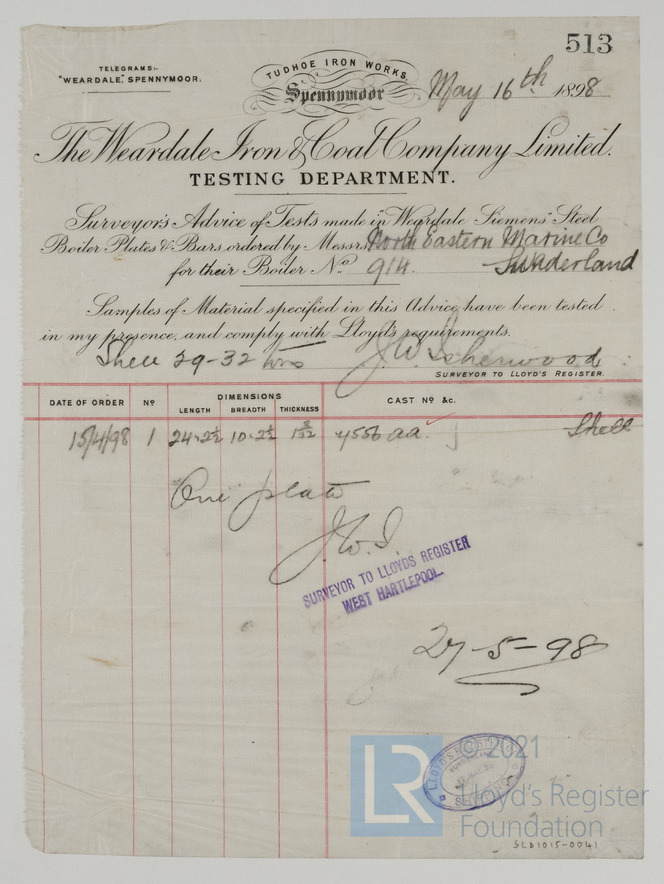 513
TELEGRAMS:-
"WEARDALE," SPENNYMOOR.
TUDHOE IRON WORKS,
Spennymoor
May 16th 1898
The Weardale Iron & Coal Company Limited.
TESTING DEPARTMENT.
Surveyor's Advice of Tests made in Weardale Siemens' Steel
Boiler Plates & Bars ordered by Messrs North Eastern Marine Co
for their Boiler No 914. Sunderland
Samples of Material specified in this Advice have been tested
in my presence, and comply with Lloyd's requirements.
Shell 29-32 tons J.W. Isherwood
SURVEYOR TO LLOYD'S REGISTER.
DATE OF ORDER No DIMENSIONS CAST No &c.
LENGTH BREADTH THICKNESS
15/4/98 1 24·2½ 10·2½ 4556 aa Shell
One plate
J.W.I.
SURVEYOR TO LLOYDS REGISTER
WEST HARTLEPOOL.
27-5-98
LLOYD'S REGISTER
LR
© 2021
Lloyd's Register
Foundation
SLD1015-0041